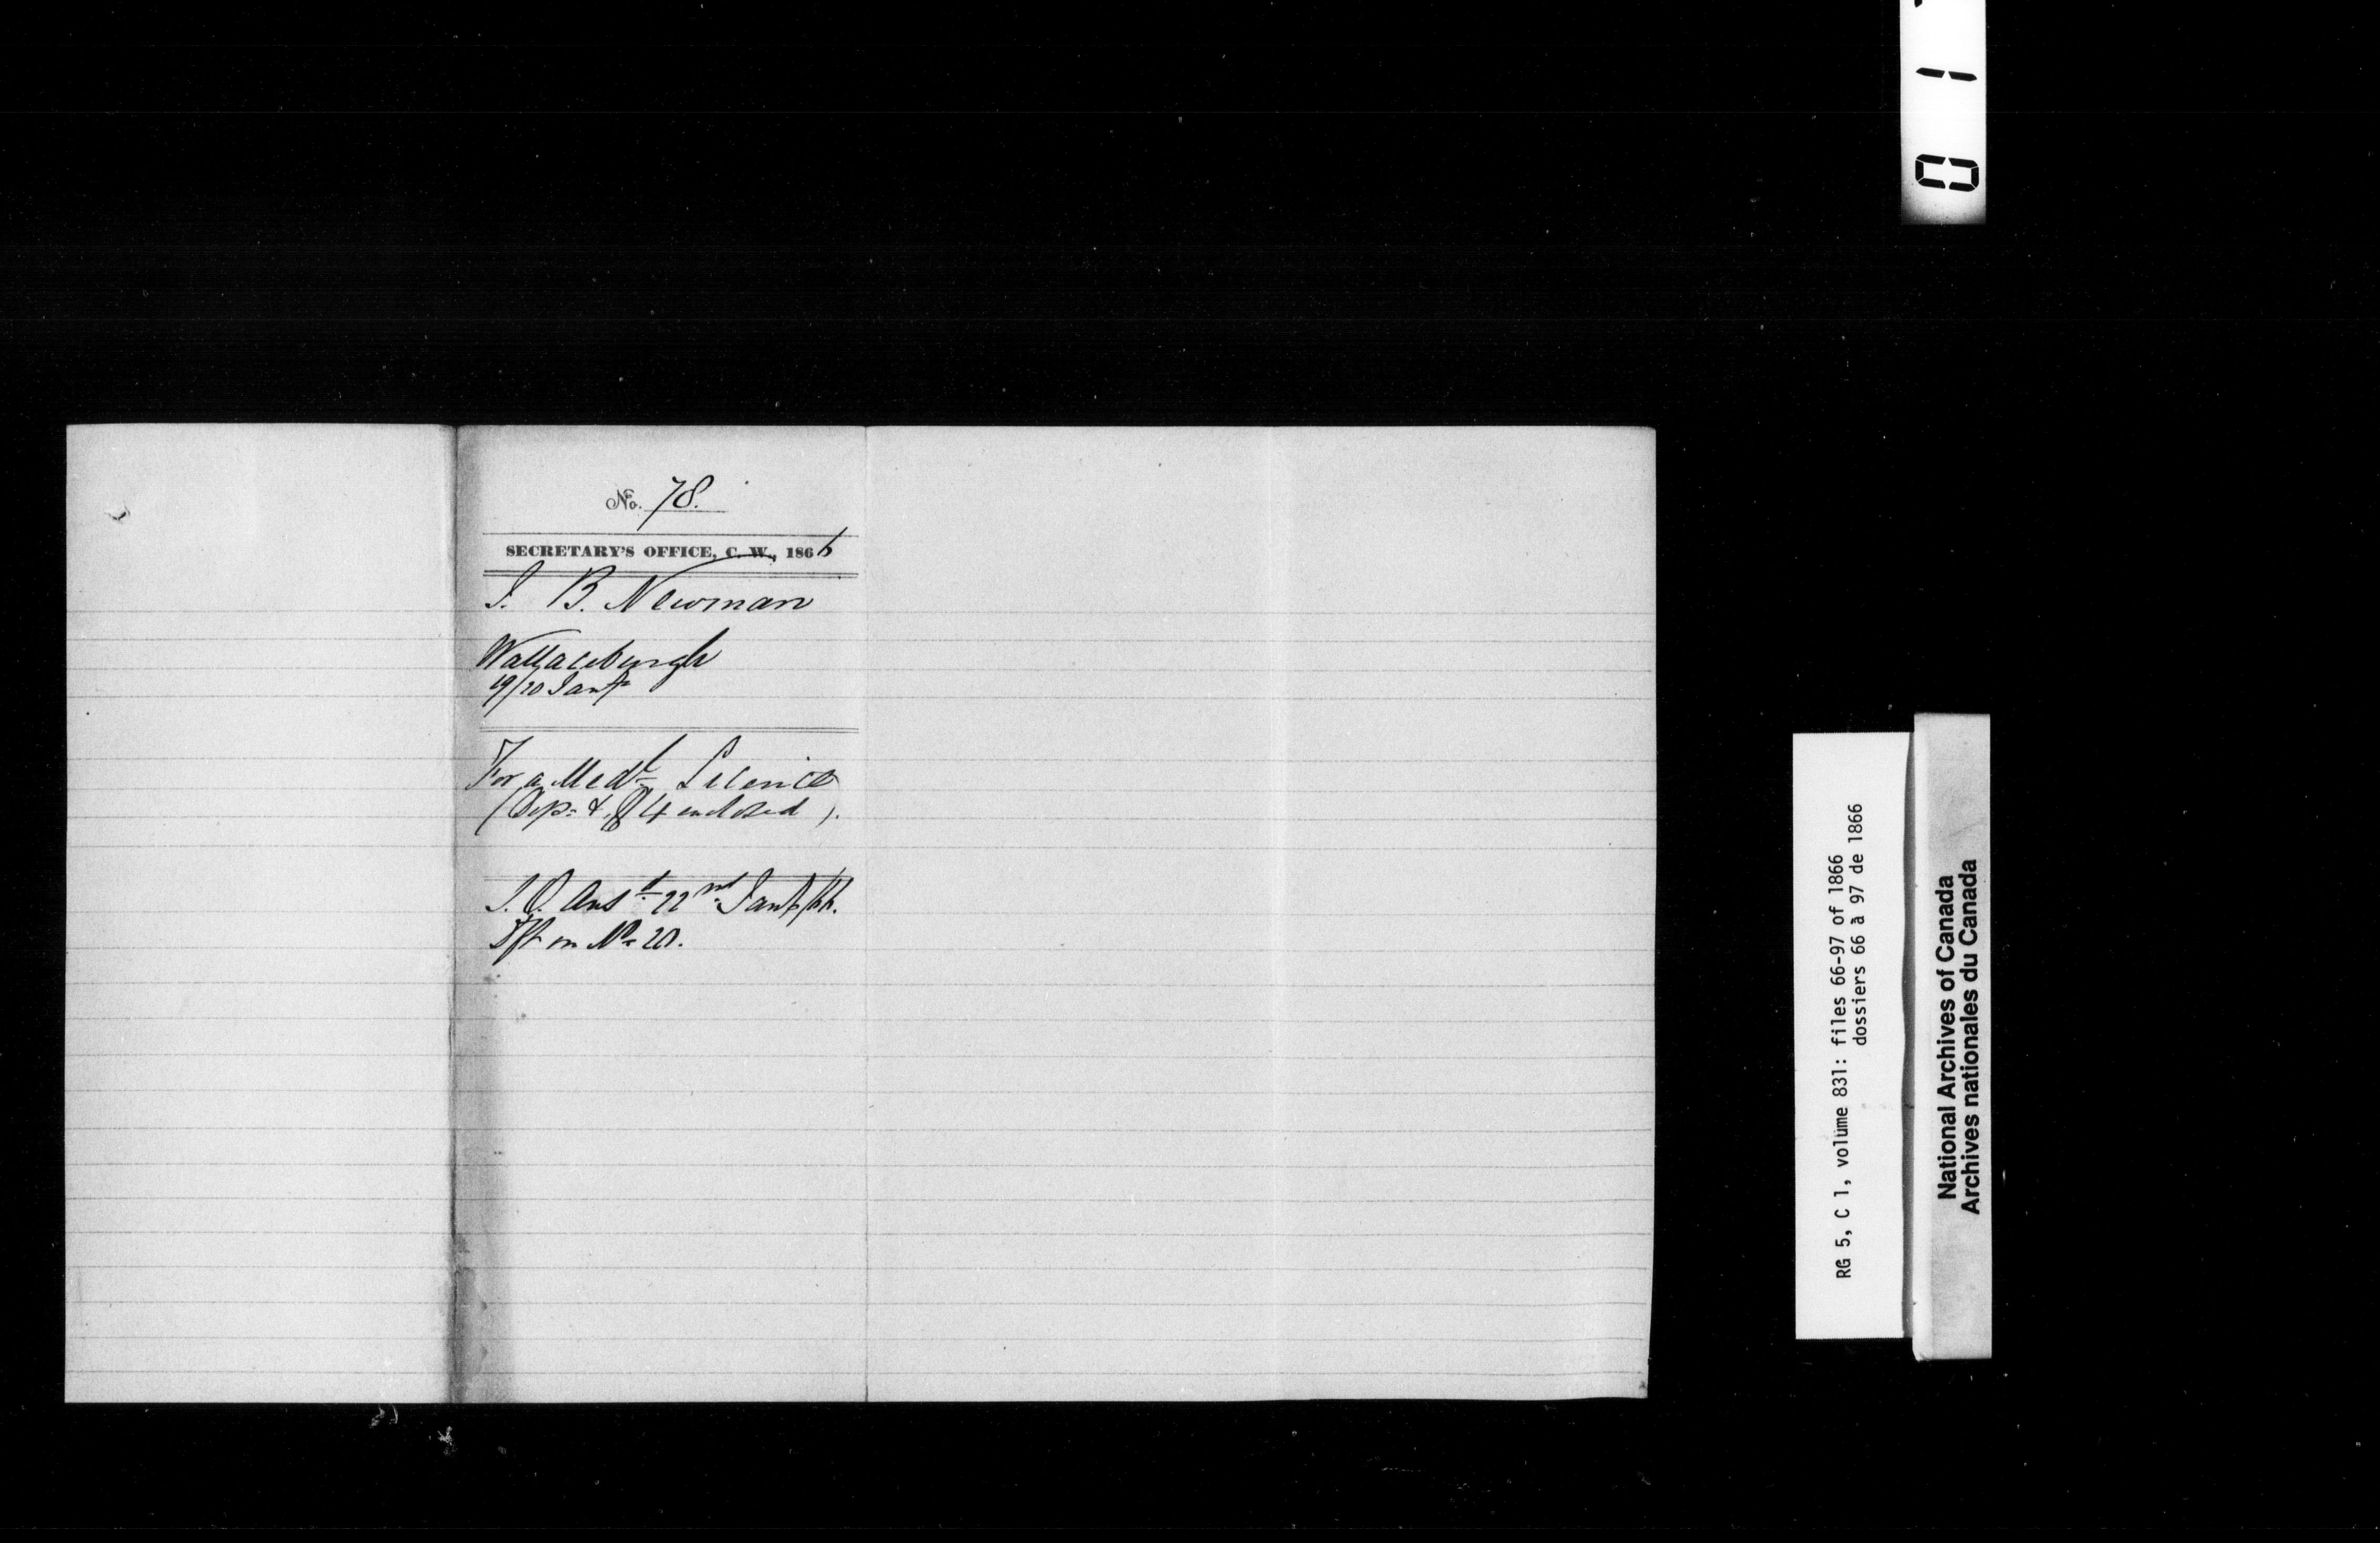 No. 78.
SECRETARY'S OFFICE, C. W., 1866
J. B. Newman
Wallaceburgh
19/20 Jany
For a Medl Licence
(Dip: & $4 enclosed).
Ansd 22nd Jany/66.
Dft on No 20.
RG 5, C 1, volume 831: files 66-97 of 1866
dossiers 66 à 97 de 1866
National Archives of Canada
Archives nationales du Canada
0 1